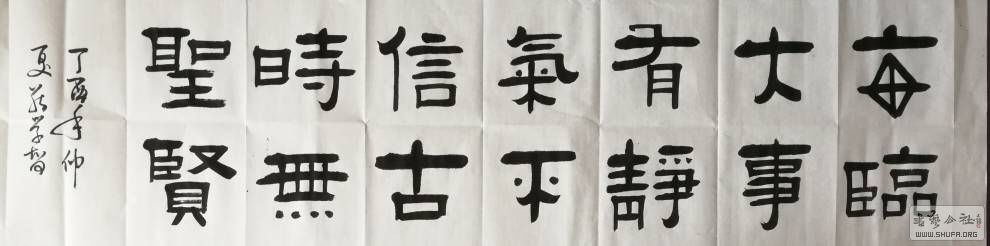 每臨
大事
有靜
氣不
信古
時無
聖賢
丁酉年仲
夏学智
公社
WWW.SHUFA.ORG